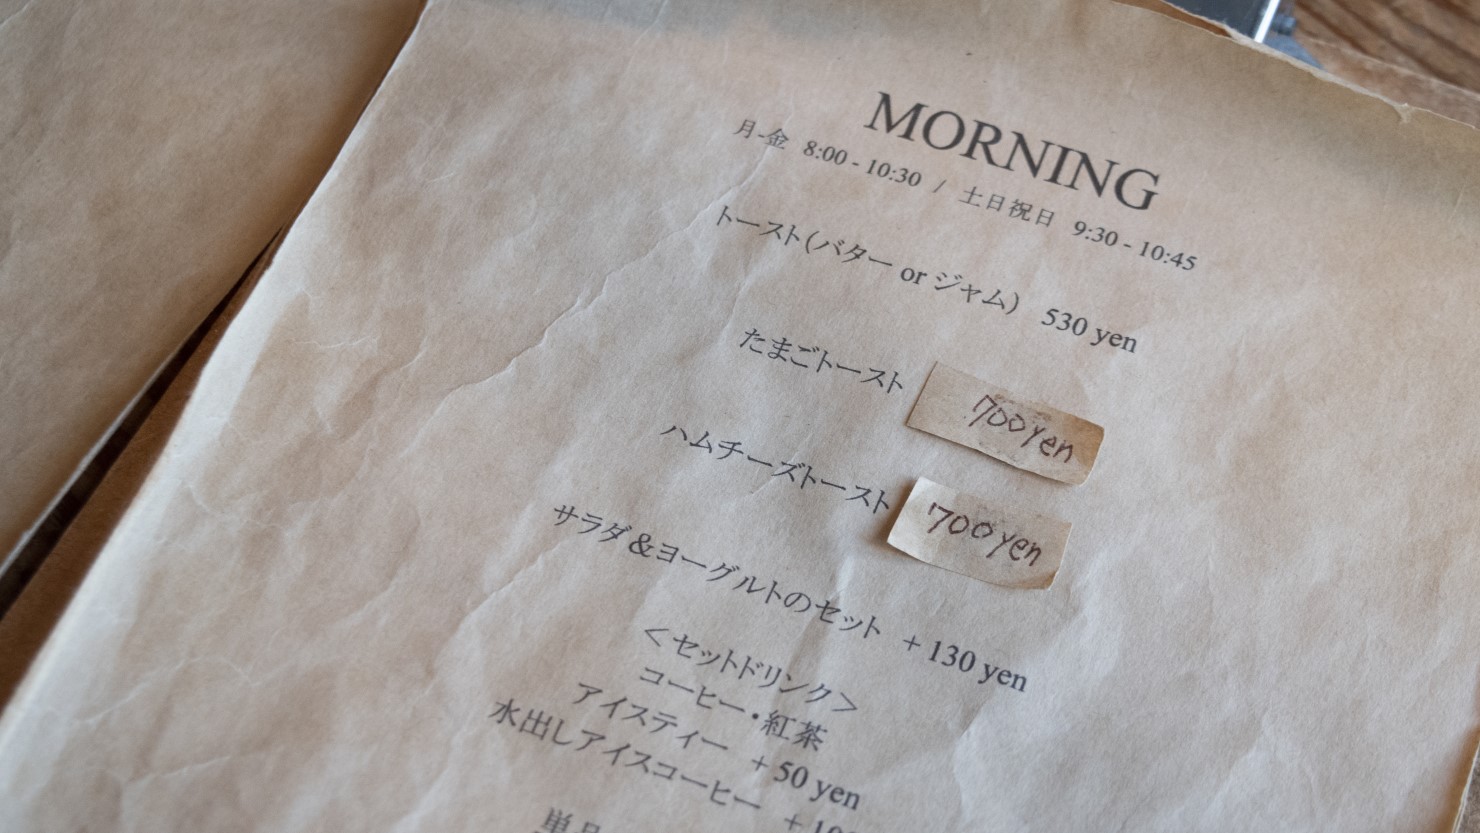 MORNING
月-金 8:00 - 10:30 / 土日祝日 9:30 - 10:45
トースト(バター or ジャム) 530 yen
たまごトースト 700yen
ハムチーズトースト 700yen
サラダ&ヨーグルトのセット + 130 yen
<セットドリンク>
コーヒー・紅茶
アイスティー + 50 yen
水出しアイスコーヒー